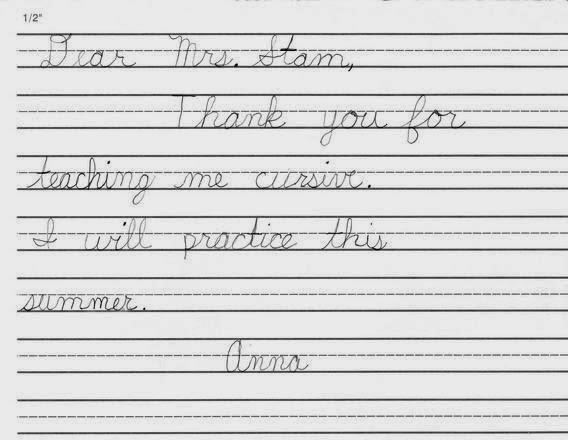 1/2"
Dear Mrs. Stam,
Thank you for
teaching me cursive.
I will practice this
summer.
Anna